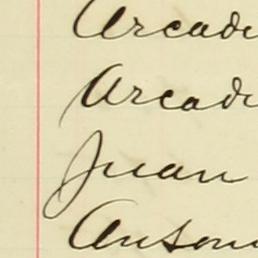 Arcadi
Arcadi
Juan
Anton